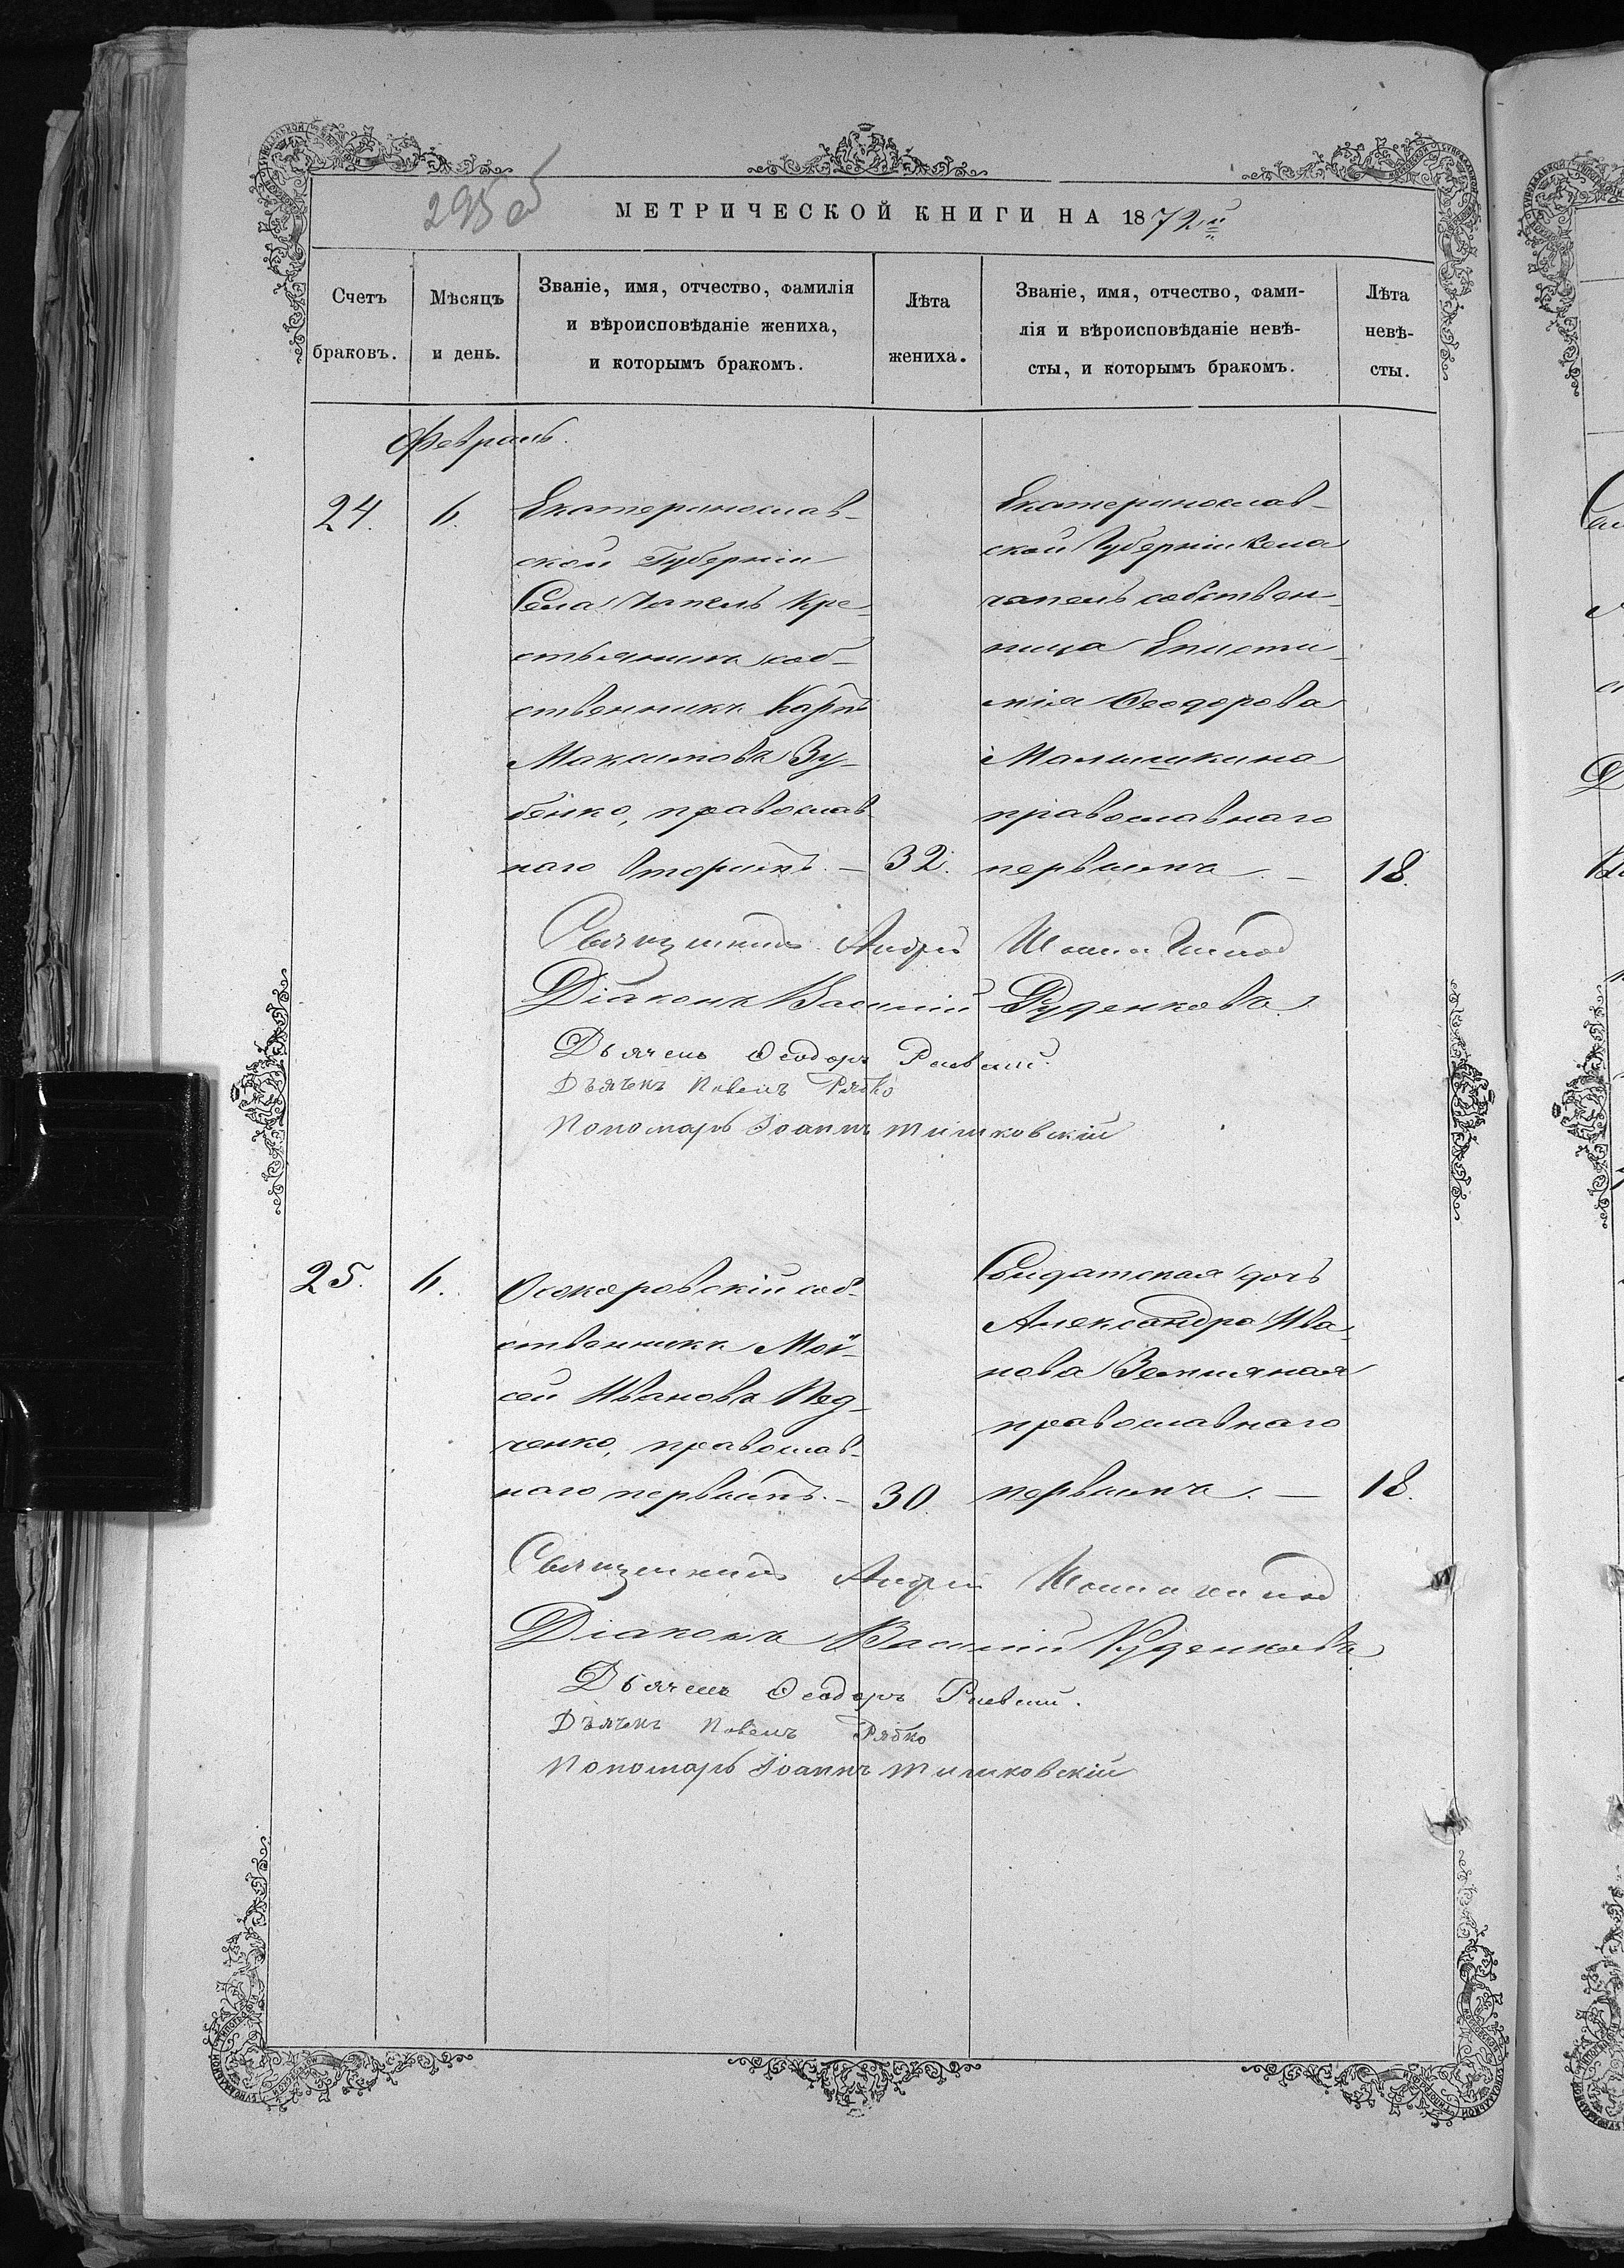 295 об
МЕТРИЧЕСКОЙ КНИГИ НА 1872й
Счетъ браковъ.
Мѣсяцъ и день.
Званіе, имя, отчество, фамилія
и вѣроисповѣданіе жениха,
и которымъ бракомъ.
Лѣта жениха.
Званіе, имя, отчество, фами-
лія и вѣроисповѣданіе невѣ-
сты, и которымъ бракомъ.
Лѣта невѣ-
сты.
Февраль.
24.
6.
Екатеринослав-
ской Губерніи
Села Чапель Кре-
стьянинъ соб-
ственникъ Карпъ
Максимовъ Зу-
бенко, православ
наго вторымъ. —
32.
Екатеринослав-
ской Губерніи села
чапель собствен-
ница Еписти-
мія Ѳеодорова
Малышкина
православнаго
первымъ. —
18.
Священникъ Андрей
Діаконъ Василій Руденковъ.
Дьячекъ Ѳеодоръ Раевскій.
Дъячекъ Павелъ Рябко
Пономарь Іоаннъ Тишковскій
25.
6.
собственникъ Мои-
сей Ивановъ Пед-
ченко, православ-
наго первымъ. —
30.
Солдатская дочь
Александра Ива-
нова Земляная
православнаго
первымъ. —
18.
Священникъ Андрей
Діаконъ Василій Руденковъ
Дьячекъ Ѳеодоръ Раевскій.
Дъячекъ Павелъ Рябко
Пономарь Іоаннъ Тишковскій